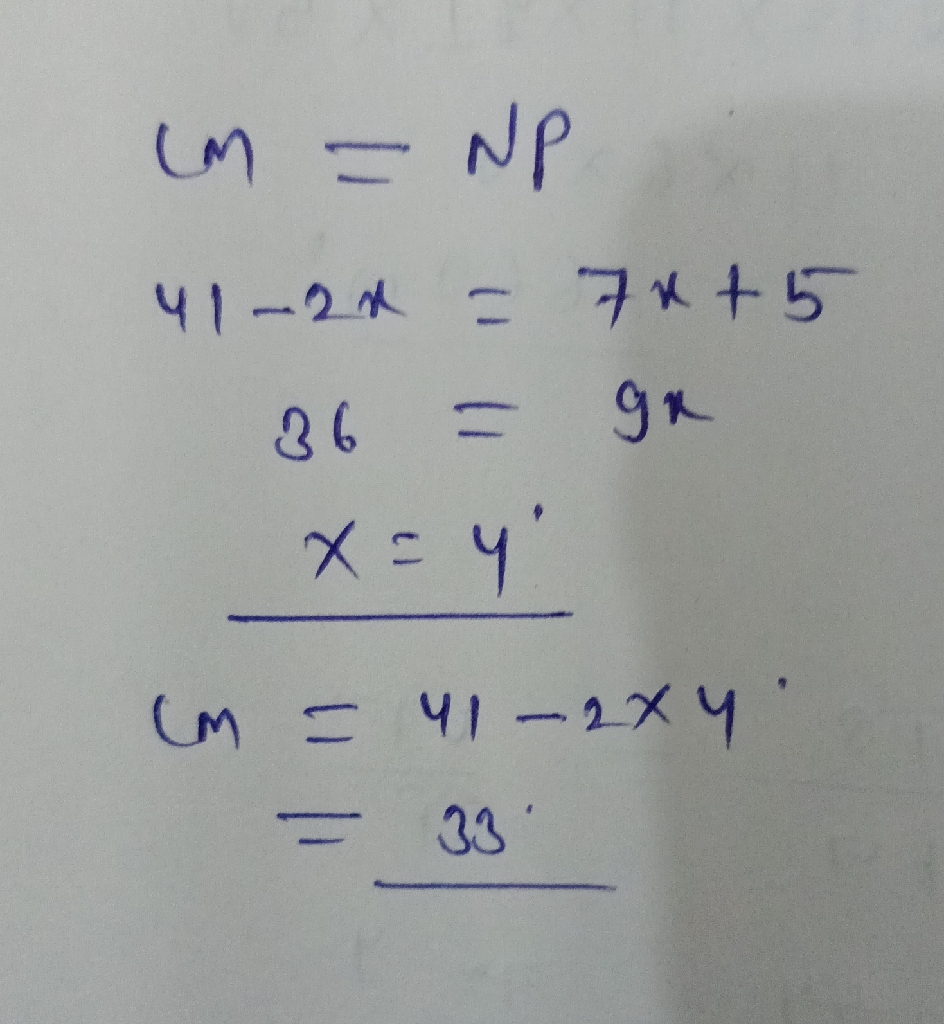 LM = NP
41 - 2x = 7x + 5
36 = 9x
x = 4
LM = 41 - 2 × 4
= 33